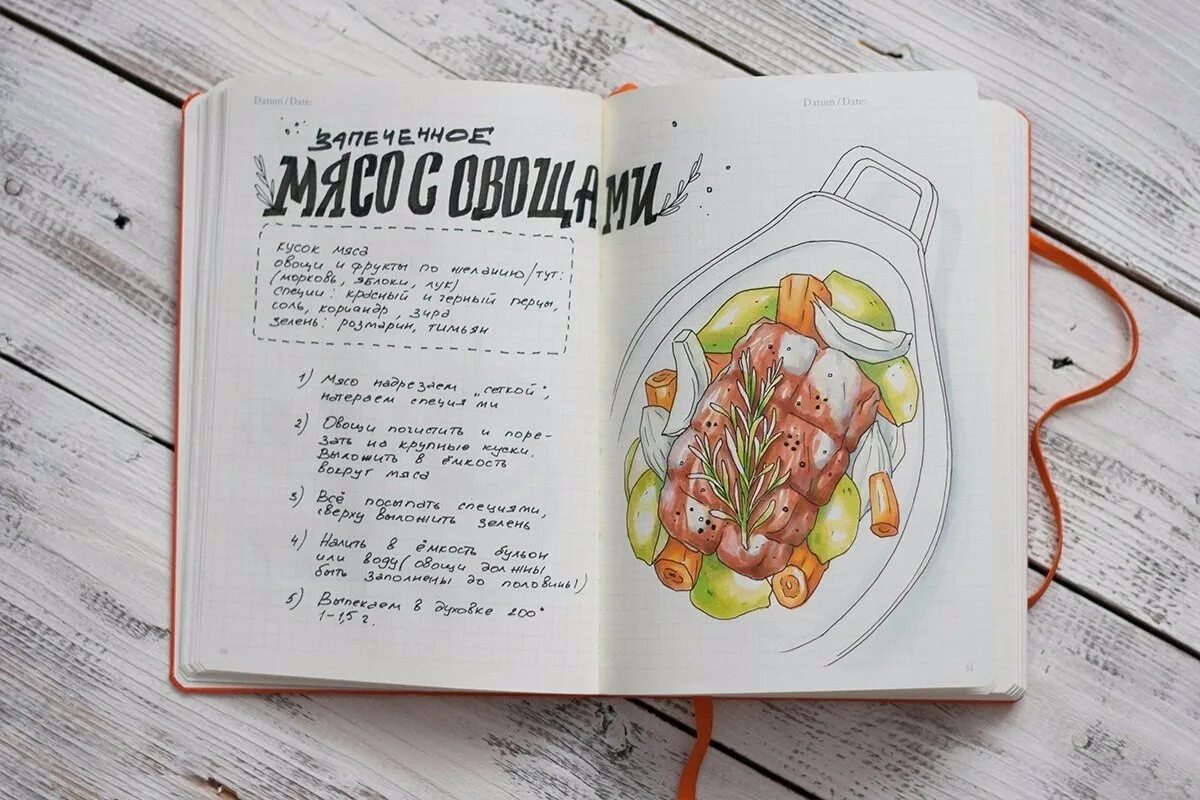 Datum / Date:
ЗАПЕЧЕННОЕ
МЯСО С ОВОЩАМИ
кусок мяса
овощи и фрукты по желанию/тут:
(морковь, яблоки, лук)
специи: красный и черный перцы,
соль, кориандр, зира
зелень: розмарин, тимьян
1) Мясо надрезаем „сеткой“,
натераем специями
2) Овощи почистить и поре-
зать на крупные куски.
Выложить в ёмкость
вокруг мяса
3) Всё посыпать специями,
сверху выложить зелень
4) Налить в ёмкость бульон
или воду (овощи должны
быть заполнены до половины)
5) Выпекаем в духовке 200°
1-1,5 ч.
50
Datum / Date:
51